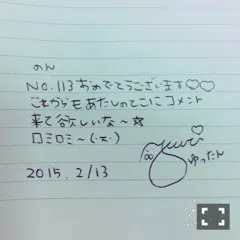 のん
NO.113おめでとうございます♡♡
これからもあたしのとこにコメント
来て欲しいな〜☆
ロミロミ〜(・x・)
2015. 2/13
yuui♡
ゆったん